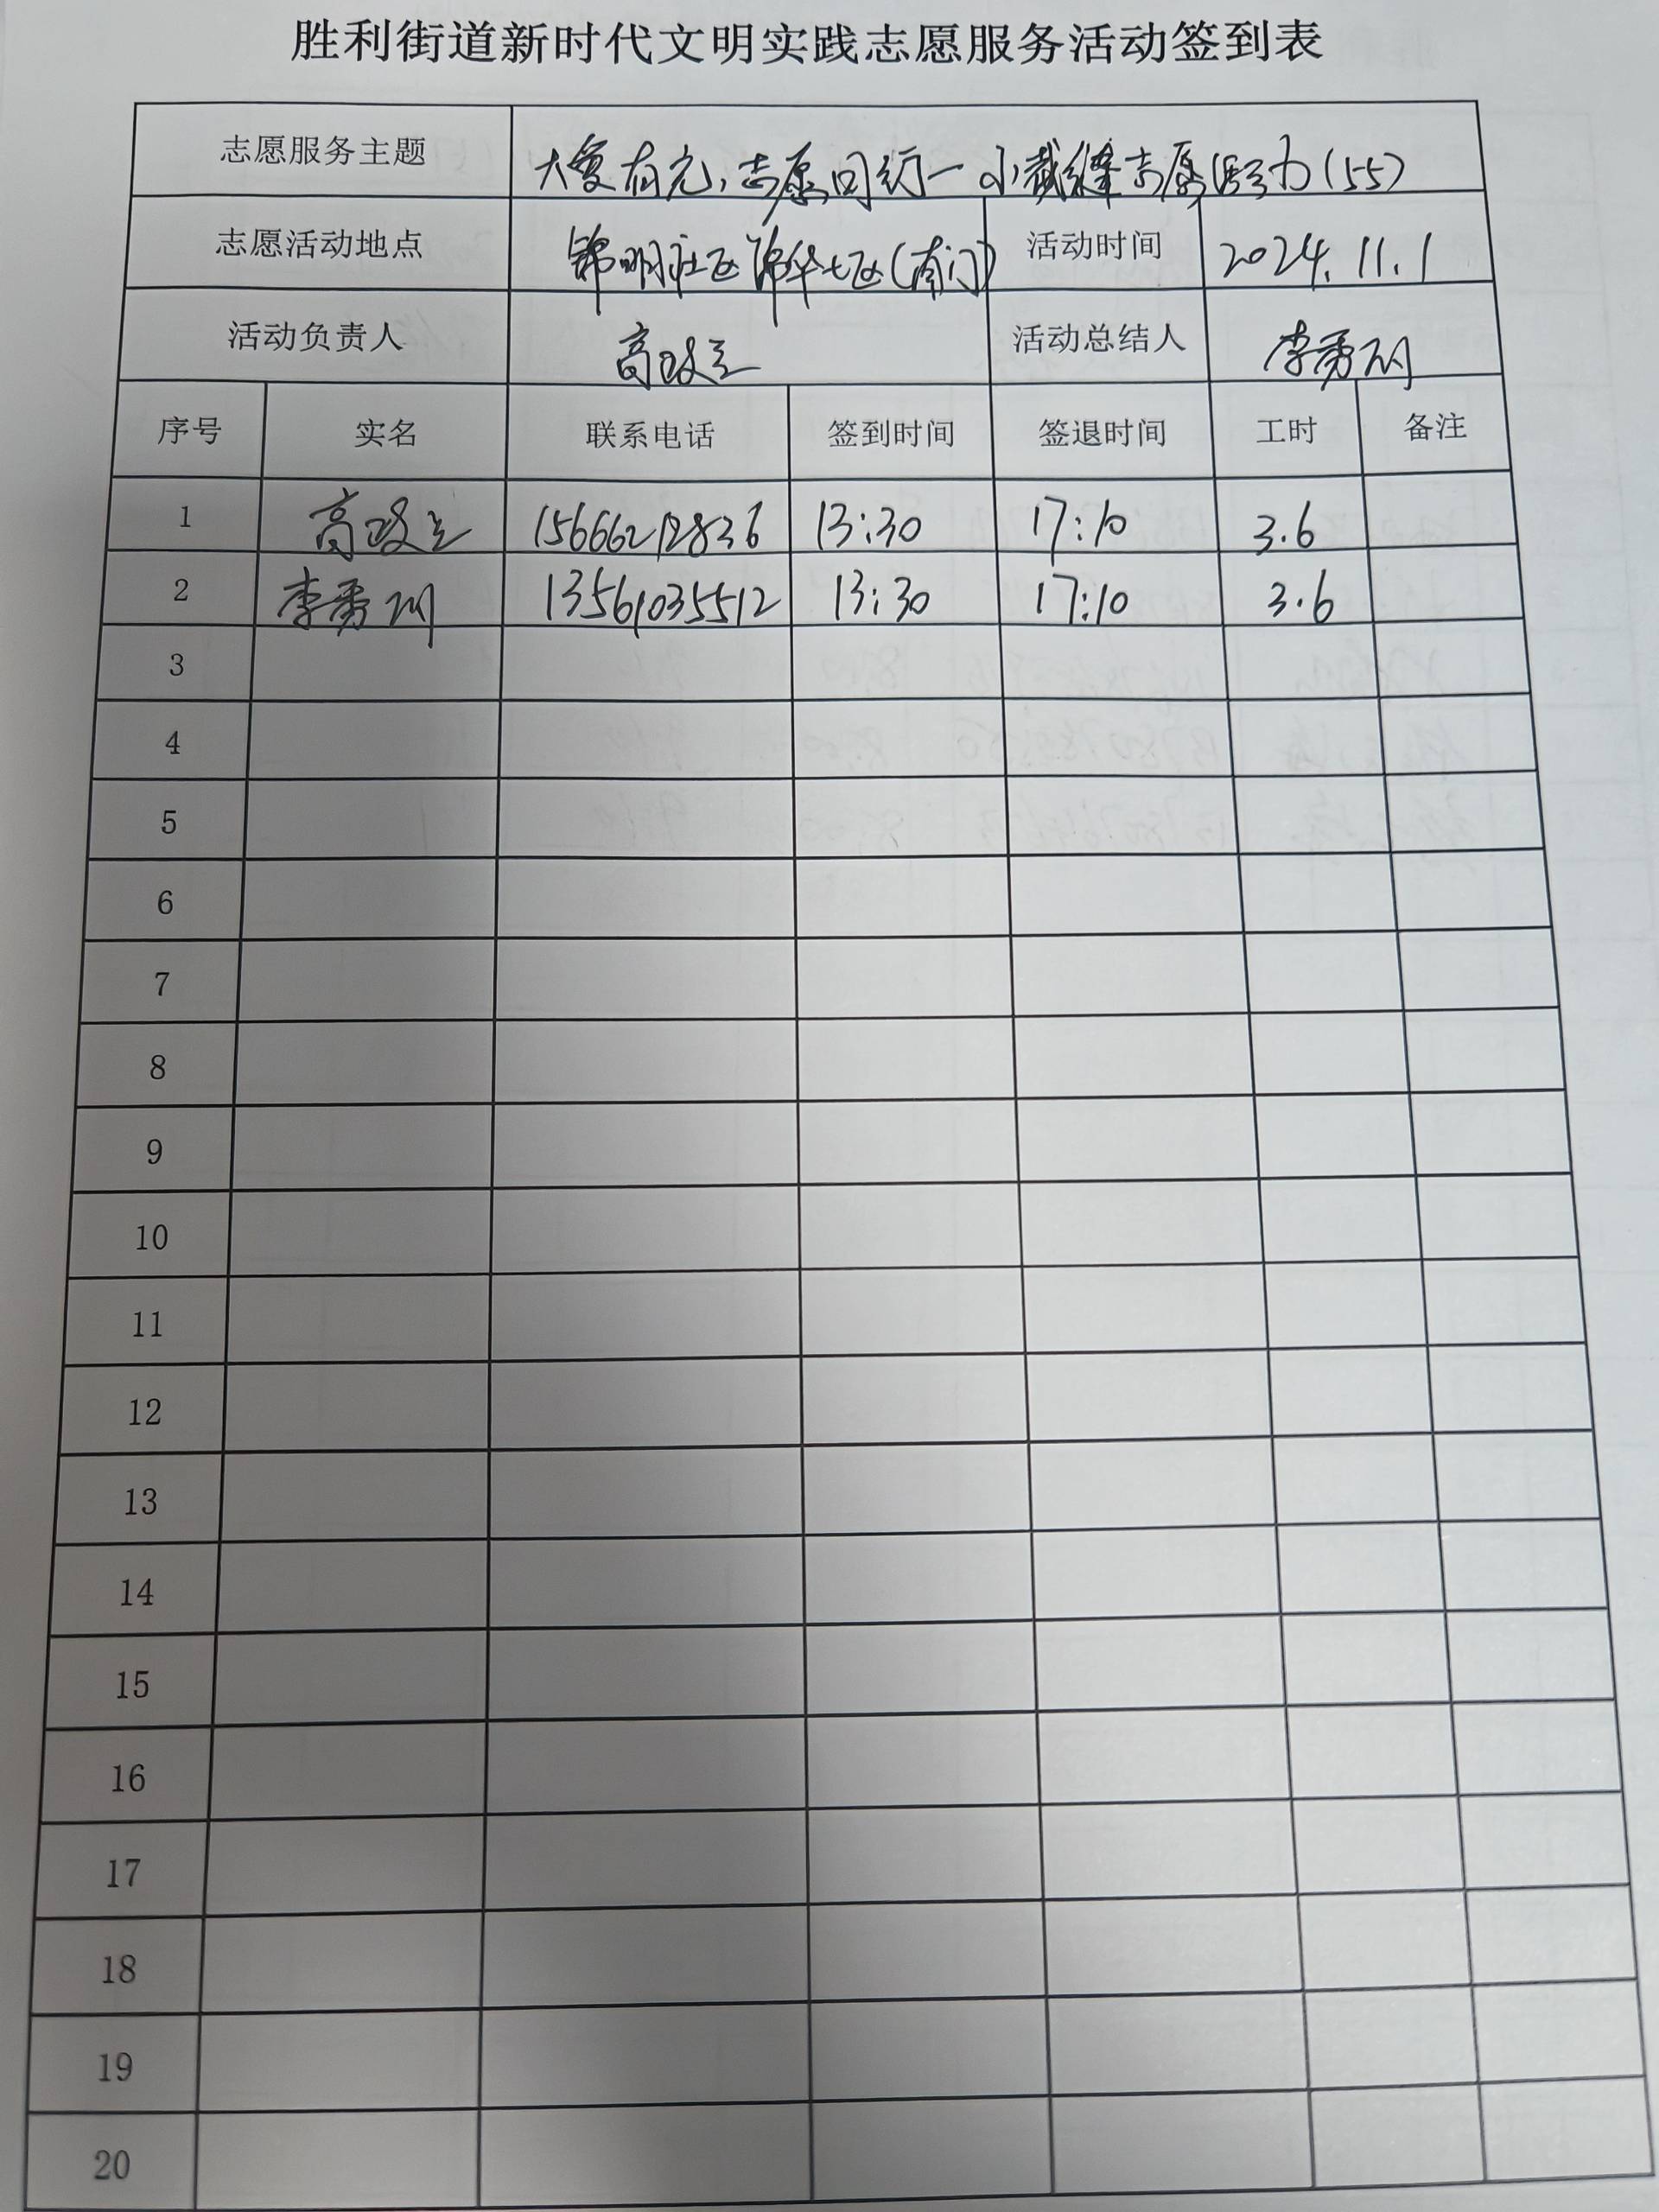 胜利街道新时代文明实践志愿服务活动签到表
志愿服务主题 大爱有光,志愿同行一小裁缝志愿活动(55)
志愿活动地点 锦明社区锦华七区(南门) 活动时间 2024.11.1
活动负责人 高政三 活动总结人 李秀丽
序号 实名 联系电话 签到时间 签退时间 工时 备注
1 高政三 15666212836 13:30 17:10 3.6
2 李秀丽 13561035512 13:30 17:10 3.6
3
4
5
6
7
8
9
10
11
12
13
14
15
16
17
18
19
20